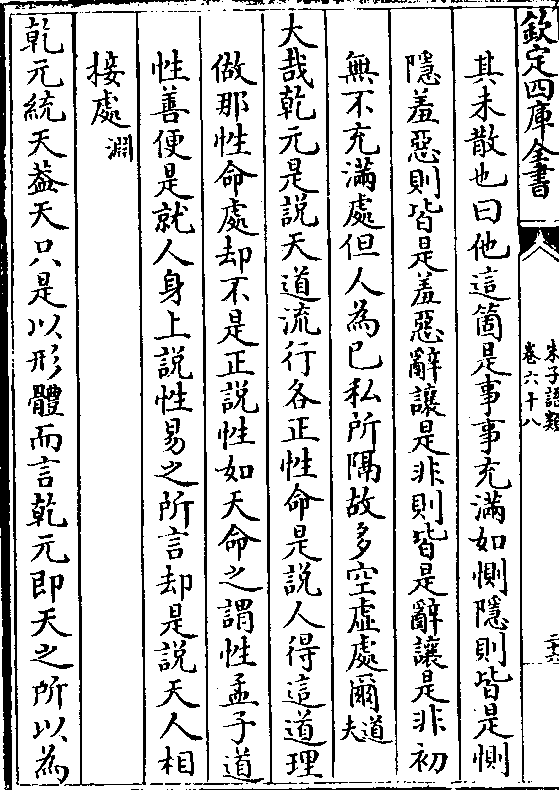 欽定四庫全書
朱子語類
卷六十八
其未散也曰他這箇是事事充滿如惻隱則皆是惻
隱羞惡則皆是羞惡辭讓是非則皆是辭讓是非初
無不充滿處但人為己私所隔故多空虛處爾道夫
大哉乾元是説天道流行各正性命是説人得這道理
做那性命處却不是正説性如天命之謂性孟子道
性善便是就人身上説性易之所言却是説天人相
接處淵
乾元統天葢天只是以形體而言乾元即天之所以為